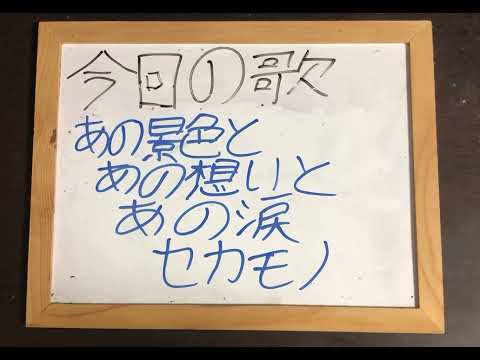 今回の歌
あの景色と
あの想いと
あの涙
セカモノ